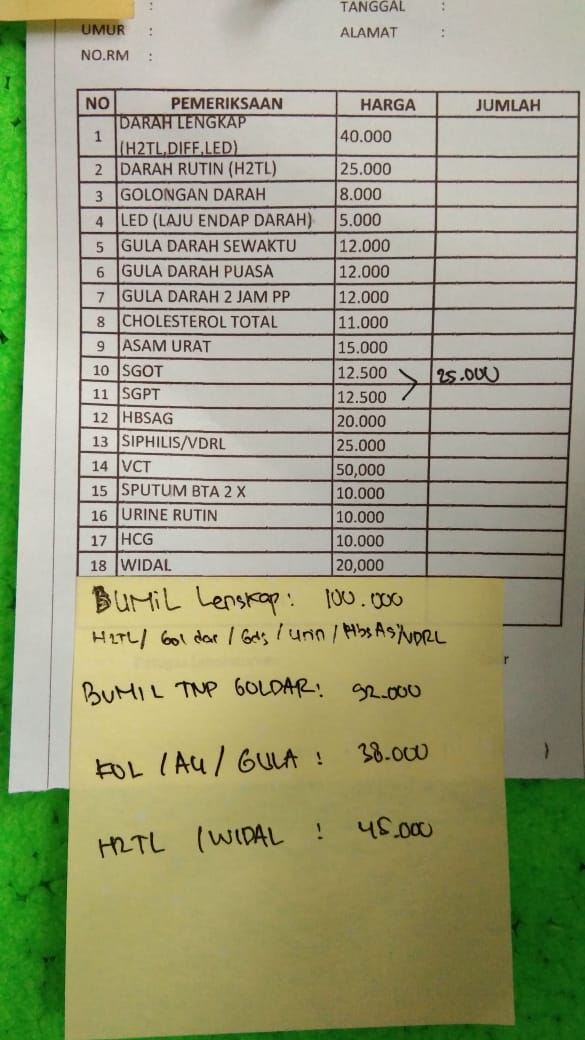 : TANGGAL :
UMUR : ALAMAT :
NO.RM :
NO PEMERIKSAAN HARGA JUMLAH
1 DARAH LENGKAP (H2TL,DIFF,LED) 40.000
2 DARAH RUTIN (H2TL) 25.000
3 GOLONGAN DARAH 8.000
4 LED (LAJU ENDAP DARAH) 5.000
5 GULA DARAH SEWAKTU 12.000
6 GULA DARAH PUASA 12.000
7 GULA DARAH 2 JAM PP 12.000
8 CHOLESTEROL TOTAL 11.000
9 ASAM URAT 15.000
10 SGOT 12.500 25.000
11 SGPT 12.500
12 HBSAG 20.000
13 SIPHILIS/VDRL 25.000
14 VCT 50,000
15 SPUTUM BTA 2 X 10.000
16 URINE RUTIN 10.000
17 HCG 10.000
18 WIDAL 20,000
BUMIL Lengkap : 100.000
H2TL / Gol dar / Gds / Urin / HbsAg / VDRL
BUMIL TNP GOLDAR : 92.000
KOL / AU / GULA : 38.000
H2TL / WIDAL : 45.000